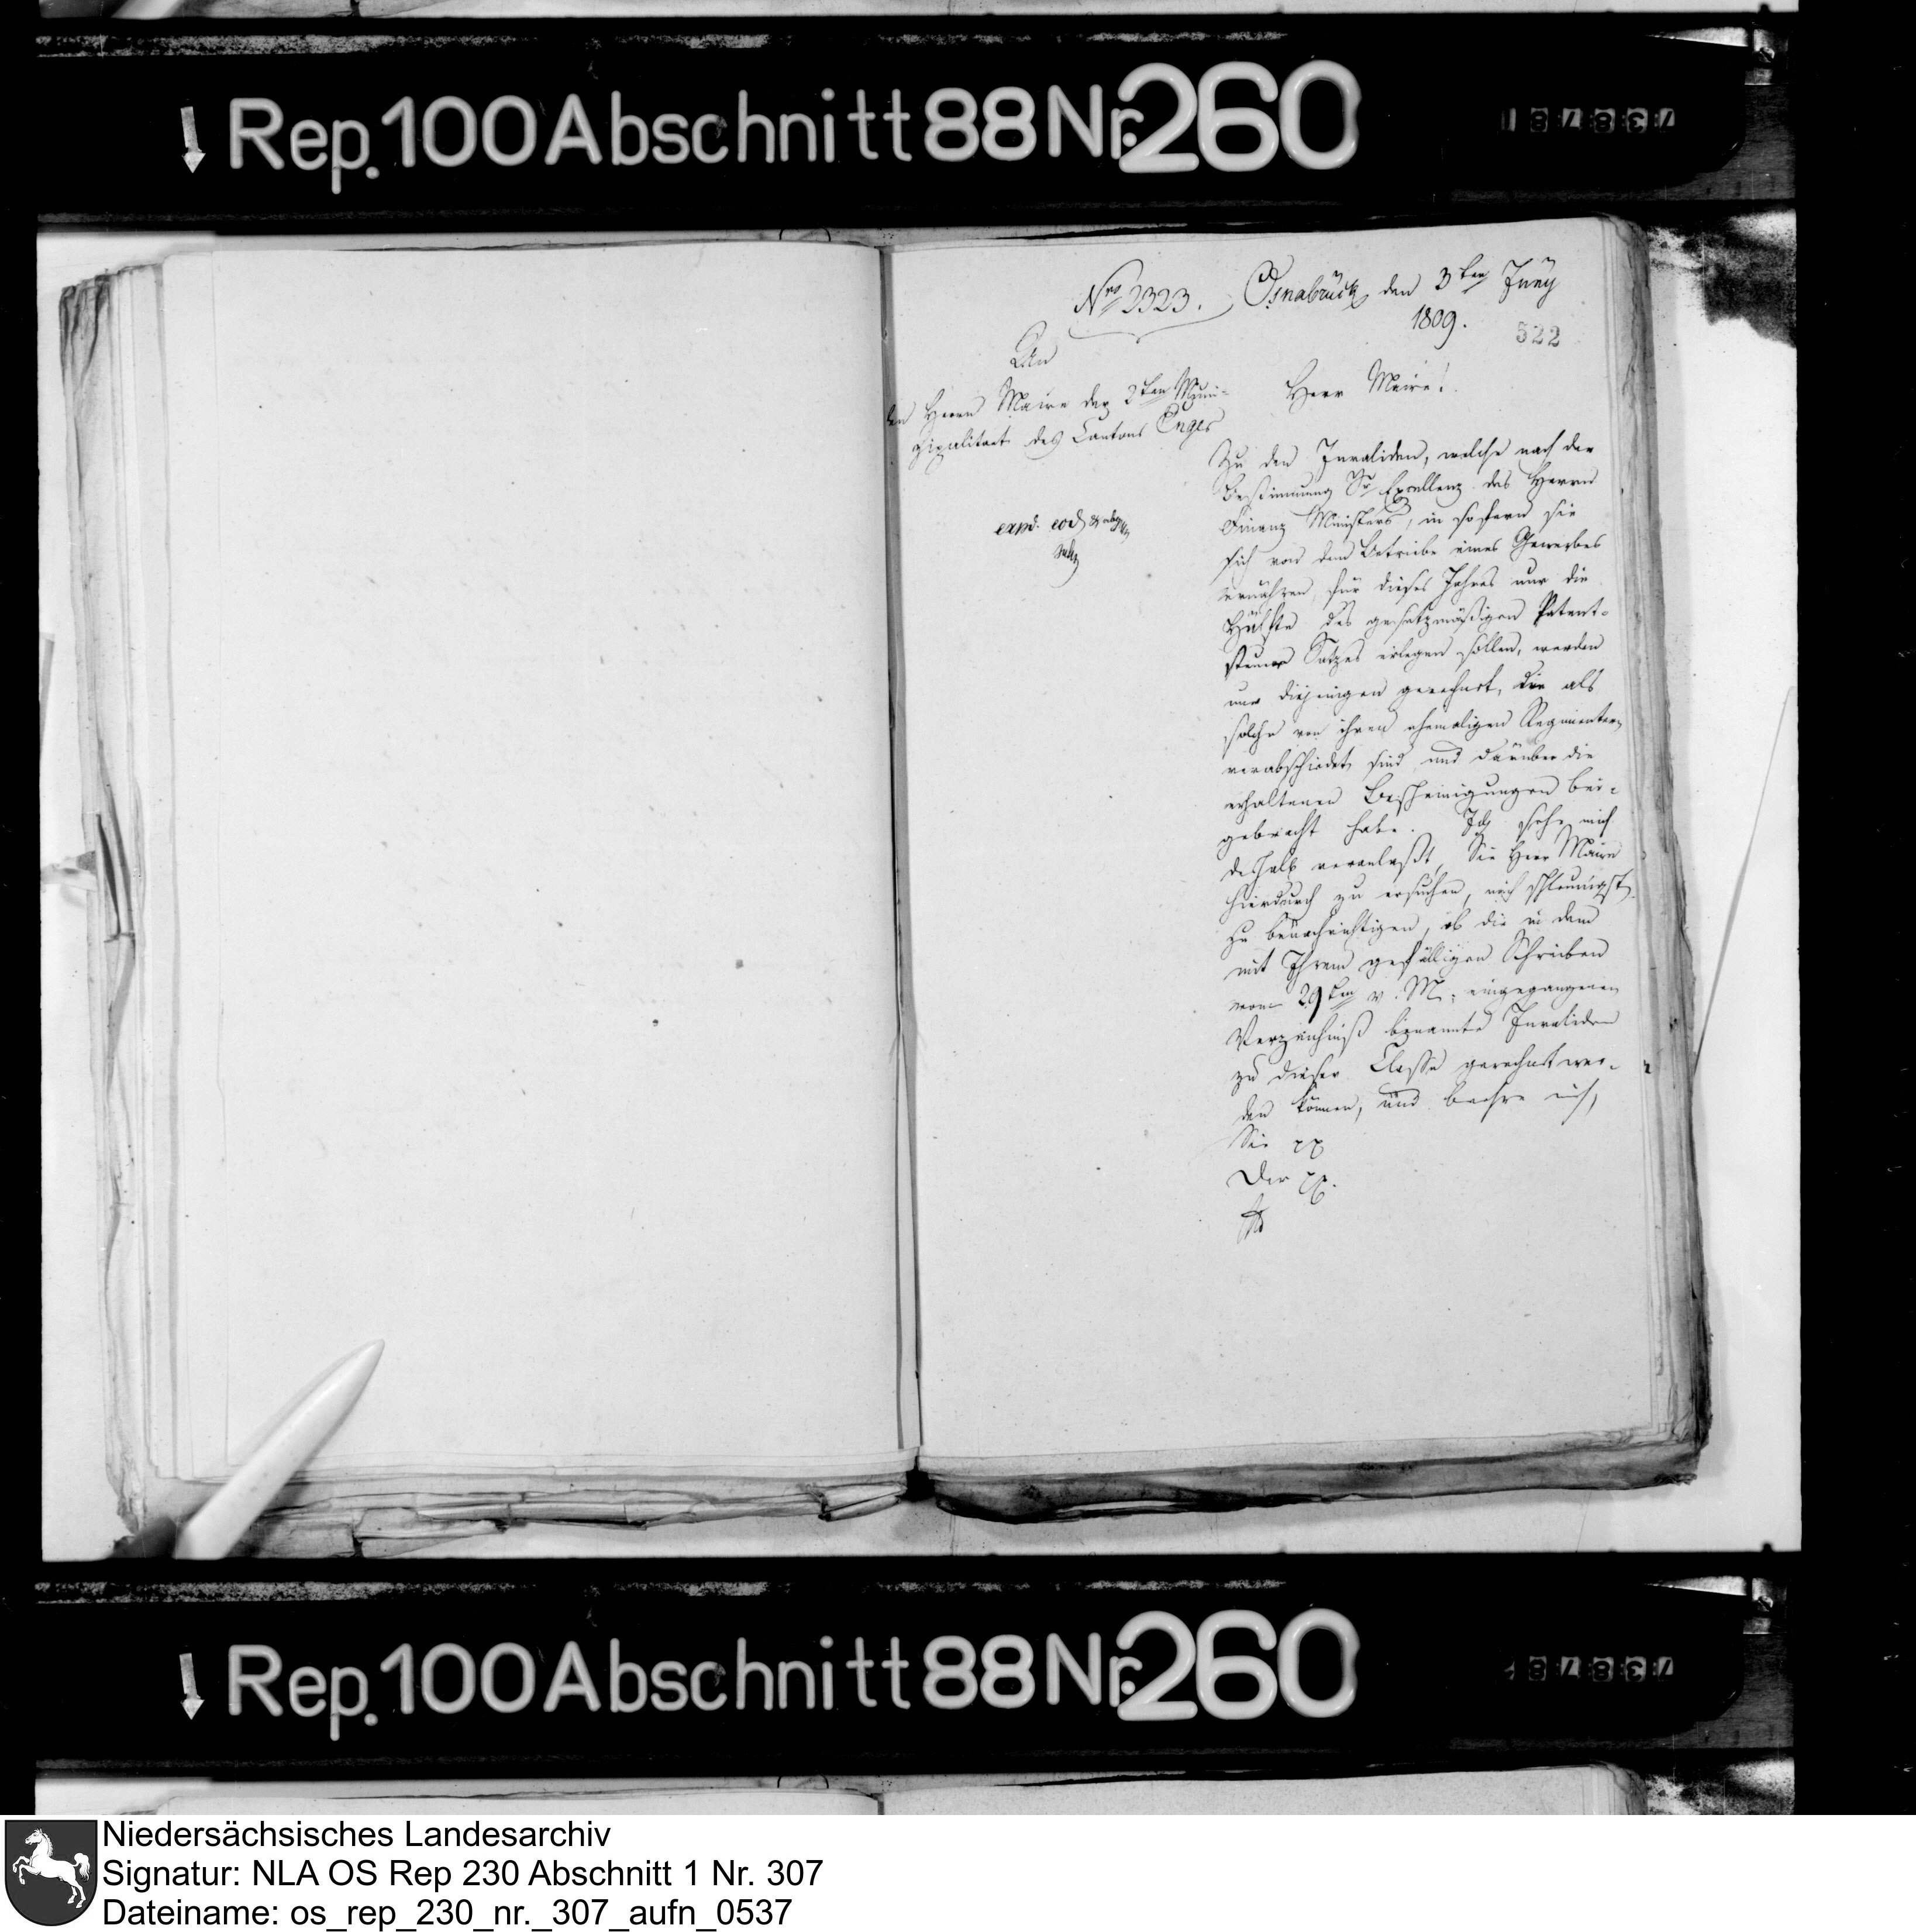 Rep. 100 Abschnitt 88 Nr. 260
Nro 2323. Osnabrück den 3ten Juny
1809.
522
An
den Herrn Maire der 2ten Muni-
zipalitaet des Cantons Enger
expd. eod
Herr Maire!
Zu den Invaliden, welche nach der
Bestimmung Sr Excellenz des Herrn
Finanz Ministers, in sofern sie
sich von dem Betriebe eines Gewerbes
ernähren, für dieses Jahres nur die
Hälfte des gesetzmäßigen Patent-
steuer Satzes erlegen sollen, werden
nur diejenigen gerechnet, die als
solche von ihren ehemaligen Regimentern
verabschiedet sind, und darüber die
erhaltenen Bescheinigungen bei-
gebracht habe. Ich sehe mich
deshalb veranlaßt, Sie Herr Maire
hierdurch zu ersuchen, mich schleunigst
zu benachrichtigen, ob die in dem
mit Ihrem gefälligen Schreiben
vom 29ten v. M. eingegangenen
Verzeichniß benannte Invaliden
zu dieser Classe gerechnet wer-
den können, und beehre mich,
Sie pp
Der pp.
Rep. 100 Abschnitt 88 Nr. 260
Niedersächsisches Landesarchiv
Signatur: NLA OS Rep 230 Abschnitt 1 Nr. 307
Dateiname: os_rep_230_nr._307_aufn_0537